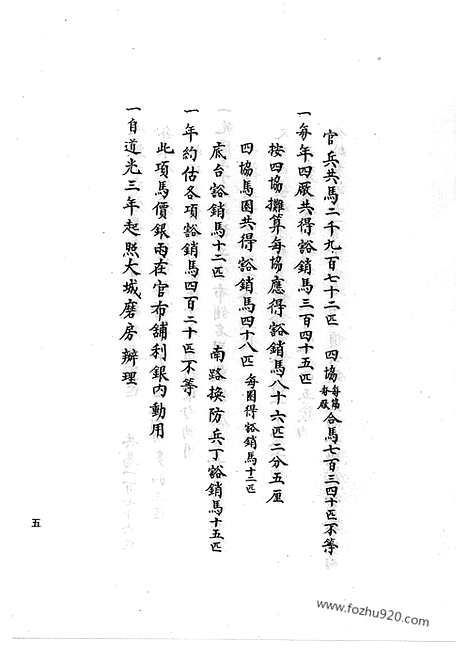 官兵共馬二千九百七十二匹　四協每協每厰合馬七百三四十匹不等
一每年四厰共得豁銷馬三百四十五匹
按四協攤算每協應得豁銷馬八十六匹二分五厘
四協馬圈共得豁銷馬四十八匹　每圈得豁銷馬十二匹
底台豁銷馬十二匹　南路換防兵丁豁銷馬十五匹
一年約估各項豁銷馬四百二十匹不等
此項馬價銀兩在官布舖利銀內動用
一自道光三年起照大城磨房辦理
五
www.fozhu920.com